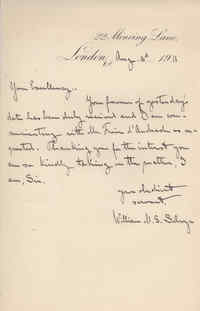 22 Mincing Lane,
London, Aug. 3d 1913
Your Excellency:-
Your favour of yesterday's
date has been duly received and I am com-
municating with Mr Freire d'Andrade as re-
quested. Thanking you for the interest you
are so kindly taking in the matter, I
am, Sir,
your obedient
servant,
William